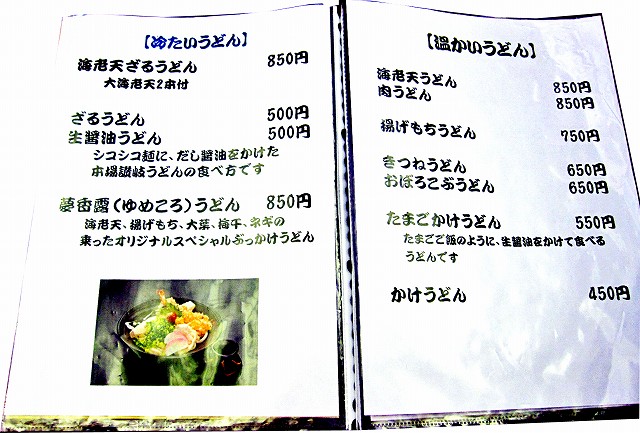 【冷たいうどん】
海老天ざるうどん 850円
大海老天2本付
ざるうどん 500円
生醤油うどん 500円
シコシコ麺に、だし醤油をかけた
本場讃岐うどんの食べ方です
夢香露(ゆめころ)うどん 850円
海老天、揚げもち、大葉、梅干、ネギの
乗ったオリジナルスペシャルぶっかけうどん
【温かいうどん】
海老天うどん 850円
肉うどん 850円
揚げもちうどん 750円
きつねうどん 650円
おぼろこぶうどん 650円
たまごかけうどん 550円
たまごご飯のように、生醤油をかけて食べる
うどんです
かけうどん 450円